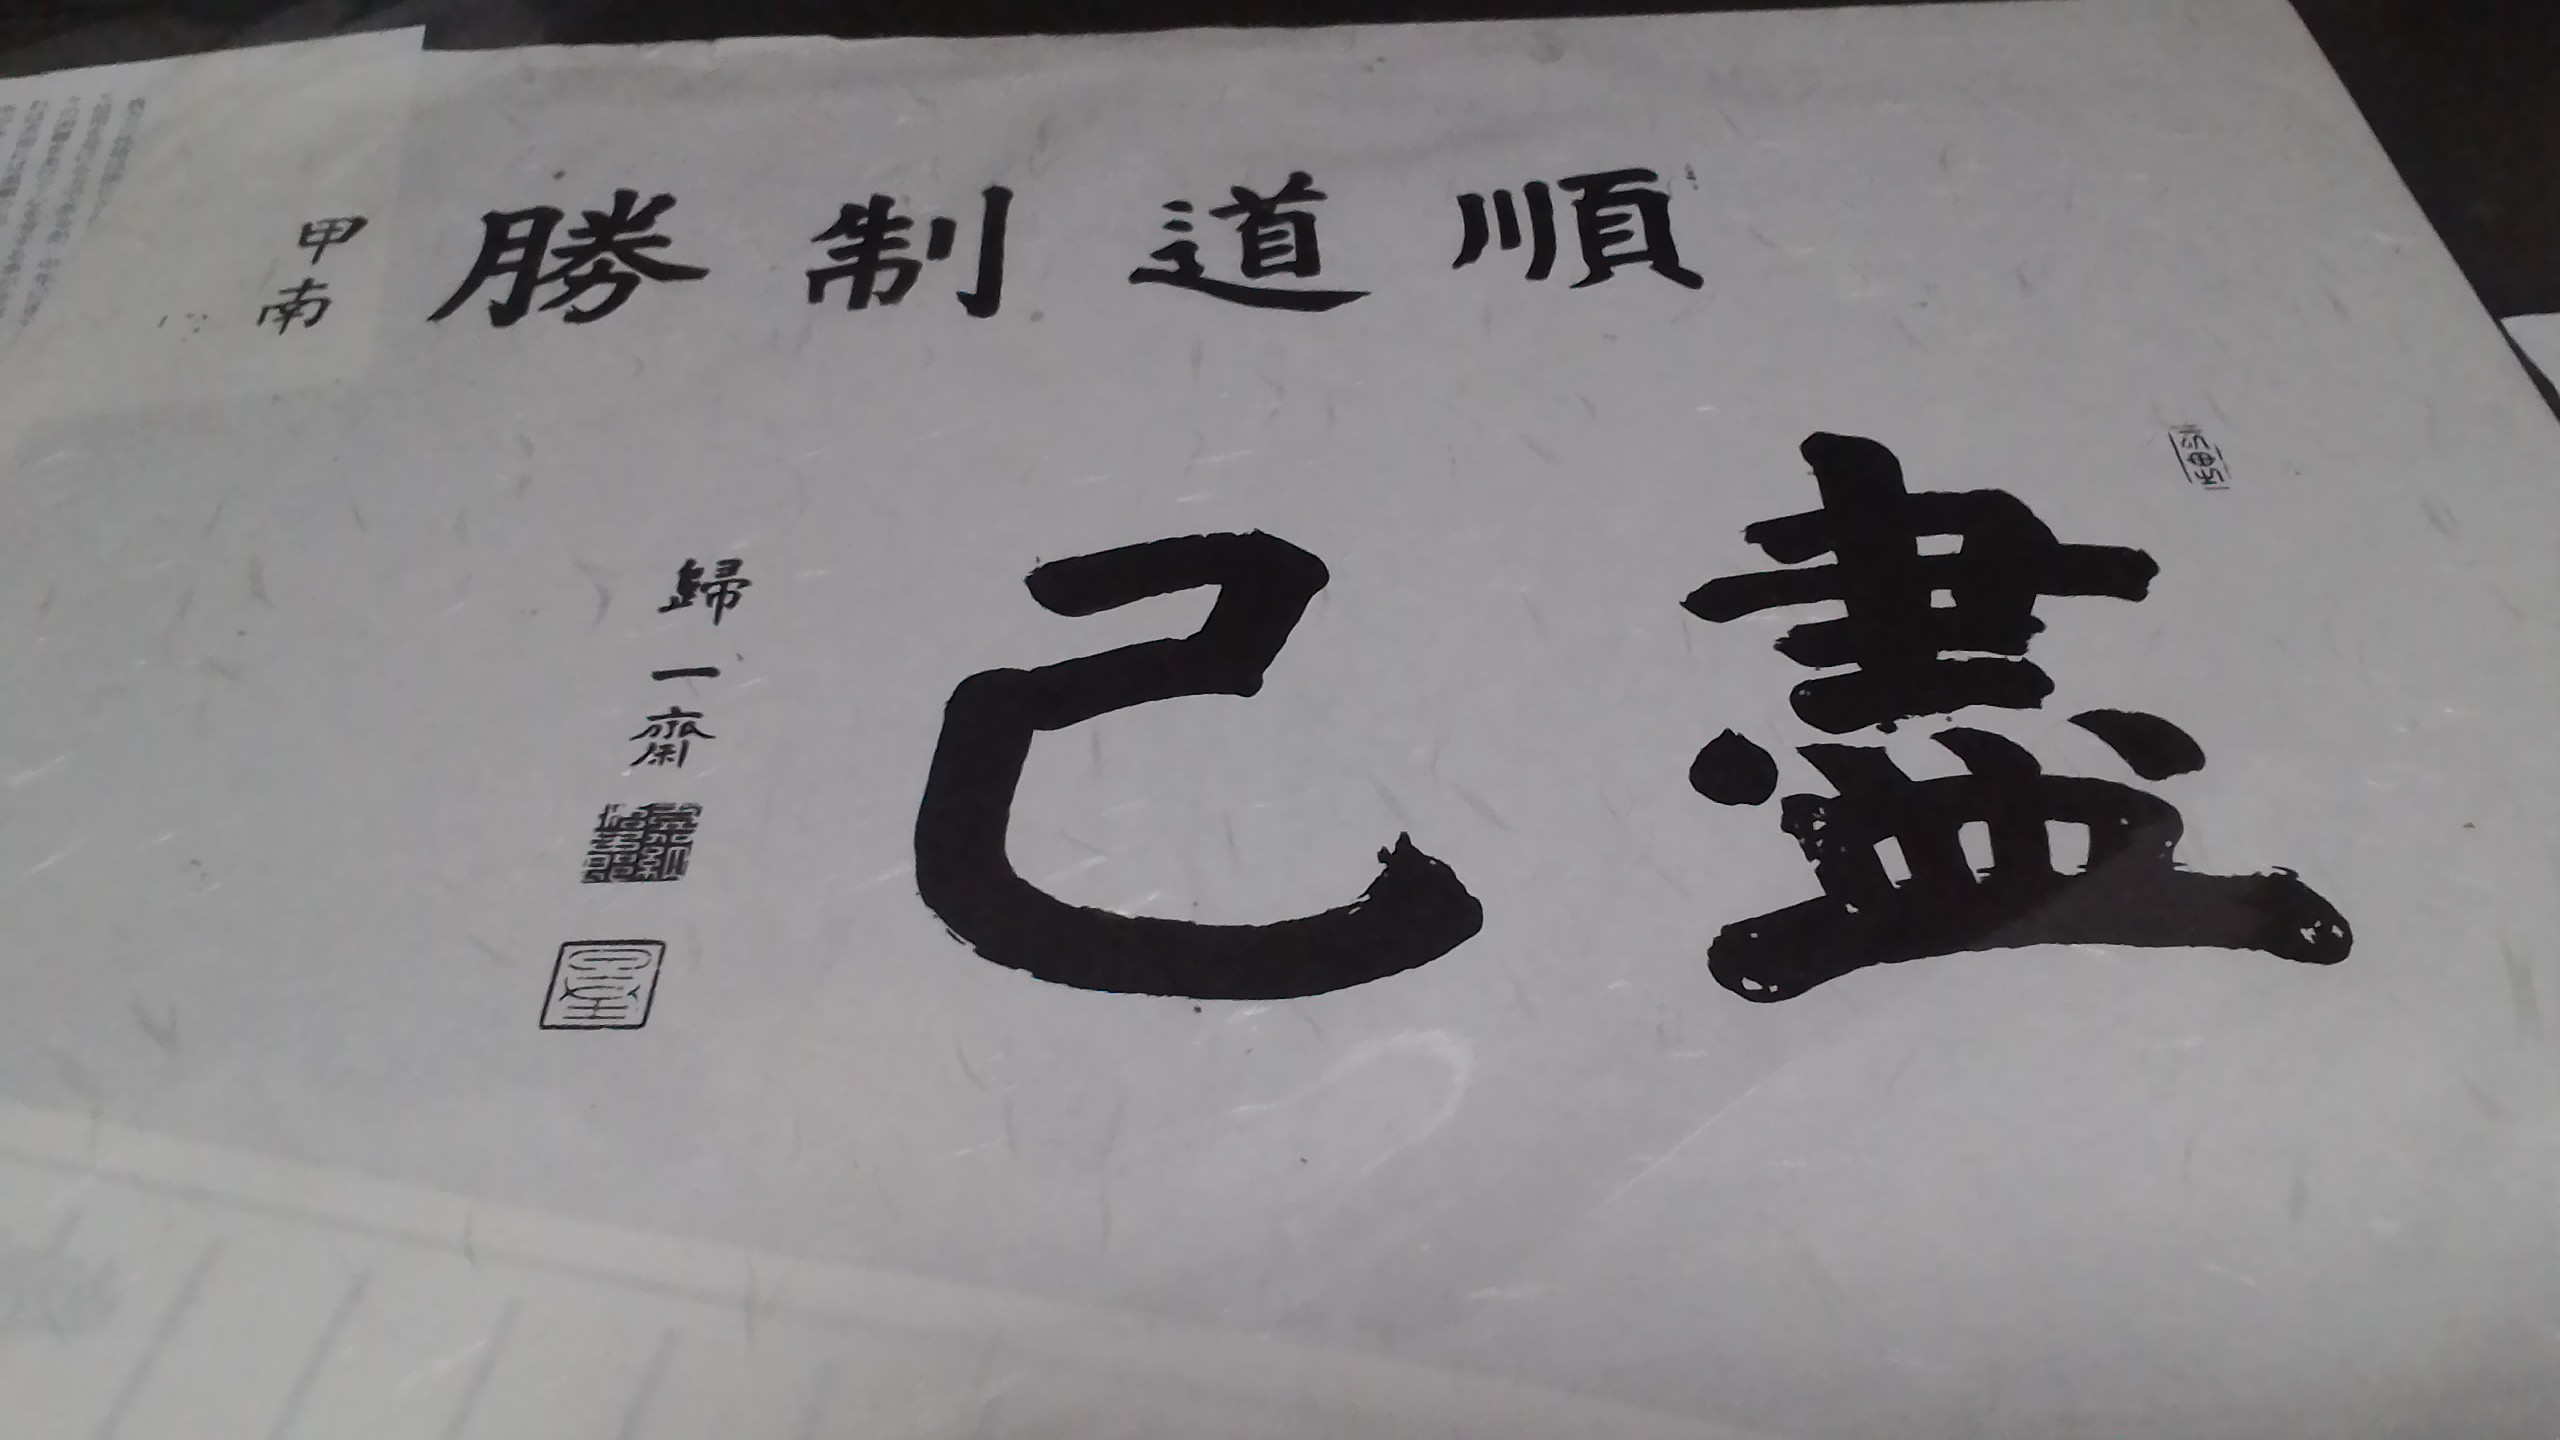 順道制勝
甲南
盡己
歸一齋